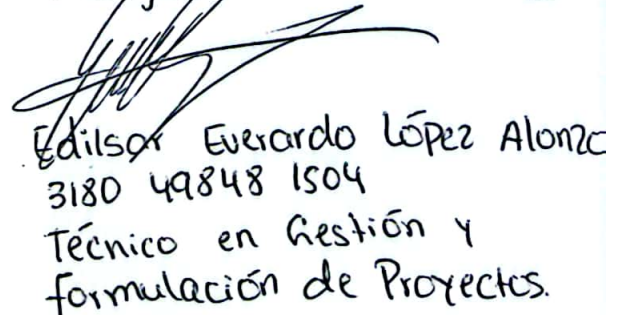 Edilsar Everardo López Alonzo
3180 49848 1504
Técnico en Gestión y
formulación de Proyectos.